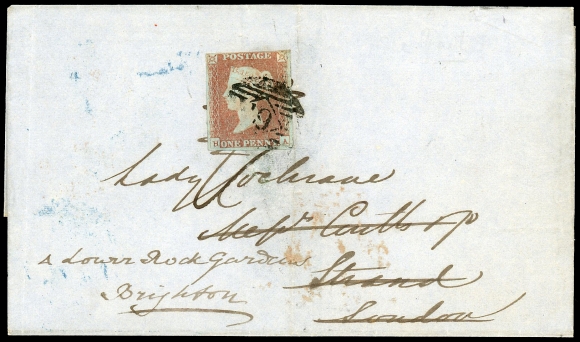 POSTAGE
ONE PENNY
Lady Cochrane
Messrs Coutts & Co
Strand
London
Lower Rock Gardens
Brighton